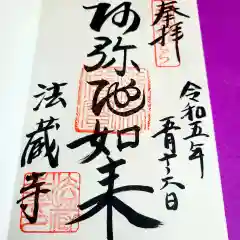 奉拝
令和五年
五月十六日
阿弥陀如来
法蔵寺